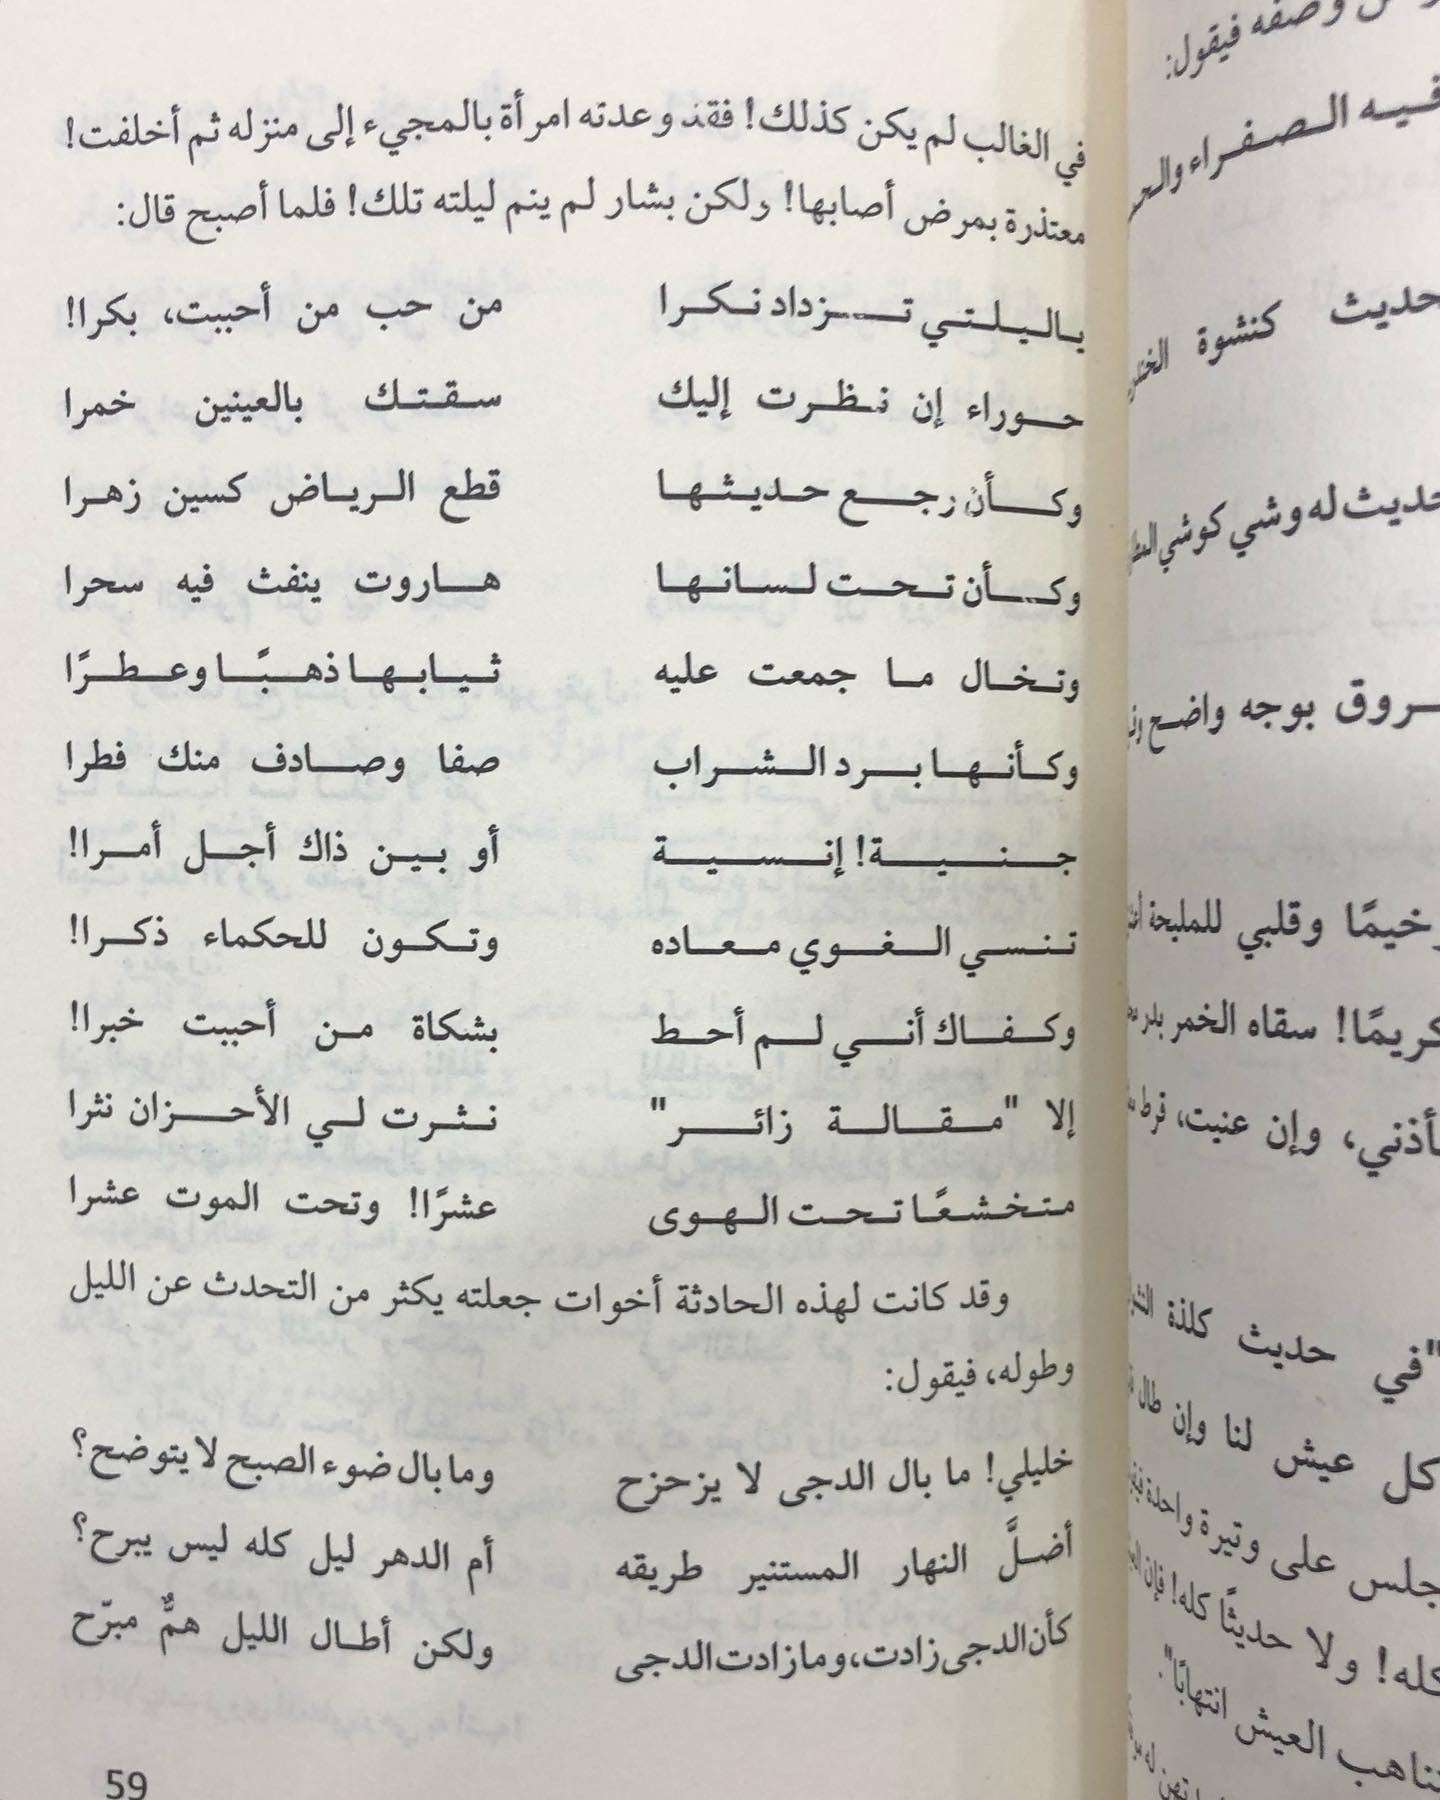 في الغالب لم يكن كذلك! فقد وعدته امرأة بالمجيء إلى منزله ثم أخلفت!
معتذرة بمرض أصابها! ولكن بشار لم ينم ليلته تلك! فلما أصبح قال:
ياليلتي تزداد نكرا من حب من أحببت، بكرا!
حوراء إن نظرت إليك سقتك بالعينين خمرا
وكأن رجع حديثها قطع الرياض كسين زهرا
وكأن تحت لسانها هاروت ينفث فيه سحرا
وتخال ما جمعت عليه ثيابها ذهبًا وعطرًا
وكأنها برد الشراب صفا وصادف منك فطرا
جنية! إنسية أو بين ذاك أجل أمرا!
تنسي الغوي معاده وتكون للحكماء ذكرا!
وكفاك أني لم أحط بشكاة من أحببت خبرا!
إلا "مقالة زائر" نثرت لي الأحزان نثرا
متخشعًا تحت الهوى عشرًا! وتحت الموت عشرا
وقد كانت لهذه الحادثة أخوات جعلته يكثر من التحدث عن الليل
وطوله، فيقول:
خليلي! ما بال الدجى لا يزحزح وما بال ضوء الصبح لا يتوضح؟
أضلَّ النهار المستنير طريقه أم الدهر ليل كله ليس يبرح؟
كأن الدجى زادت، وما زادت الدجى ولكن أطال الليل همٌّ مبرّح
59
وصفه فيقول:
فيه الصفراء
حديث كنشوة
حديث له وشي كوشي
بوجه واضح
وقلبي للمليحة
سقاه الخمر بدر
وإن عنيت، قرط
"في حديث كلذة
كل عيش لنا وإن طال
على وتيرة واحدة
كله! ولا حديثًا كله! فإن
العيش انتهابًا".